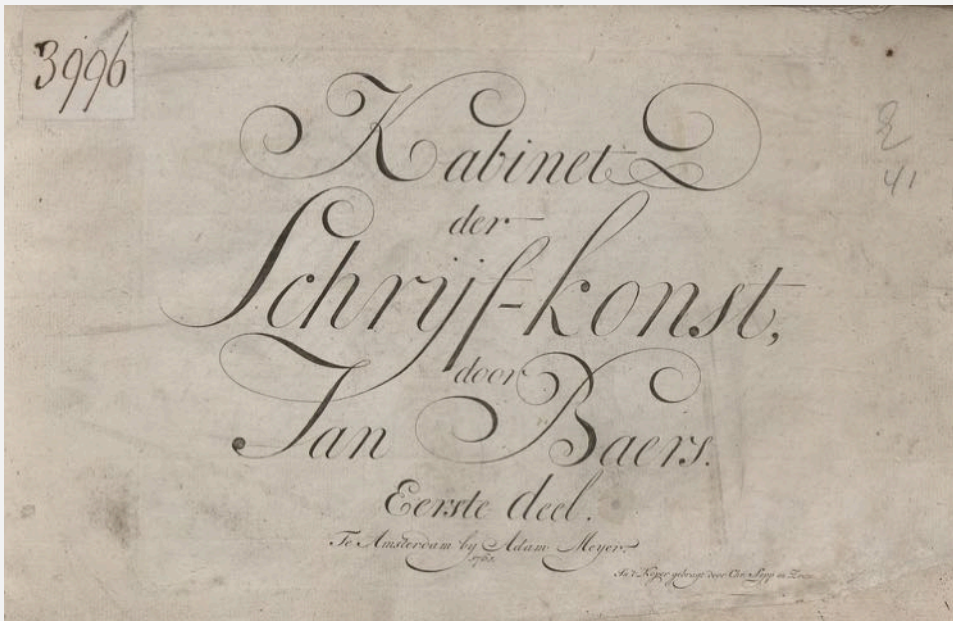 3996
E
41
Kabinet
der
Schrijf-konst,
door
Jan Baers.
Eerste deel.
Te Amsterdam by Adam Meyer.
1761.
In 't Koper gebragt door Chr. Sepp en Zoon